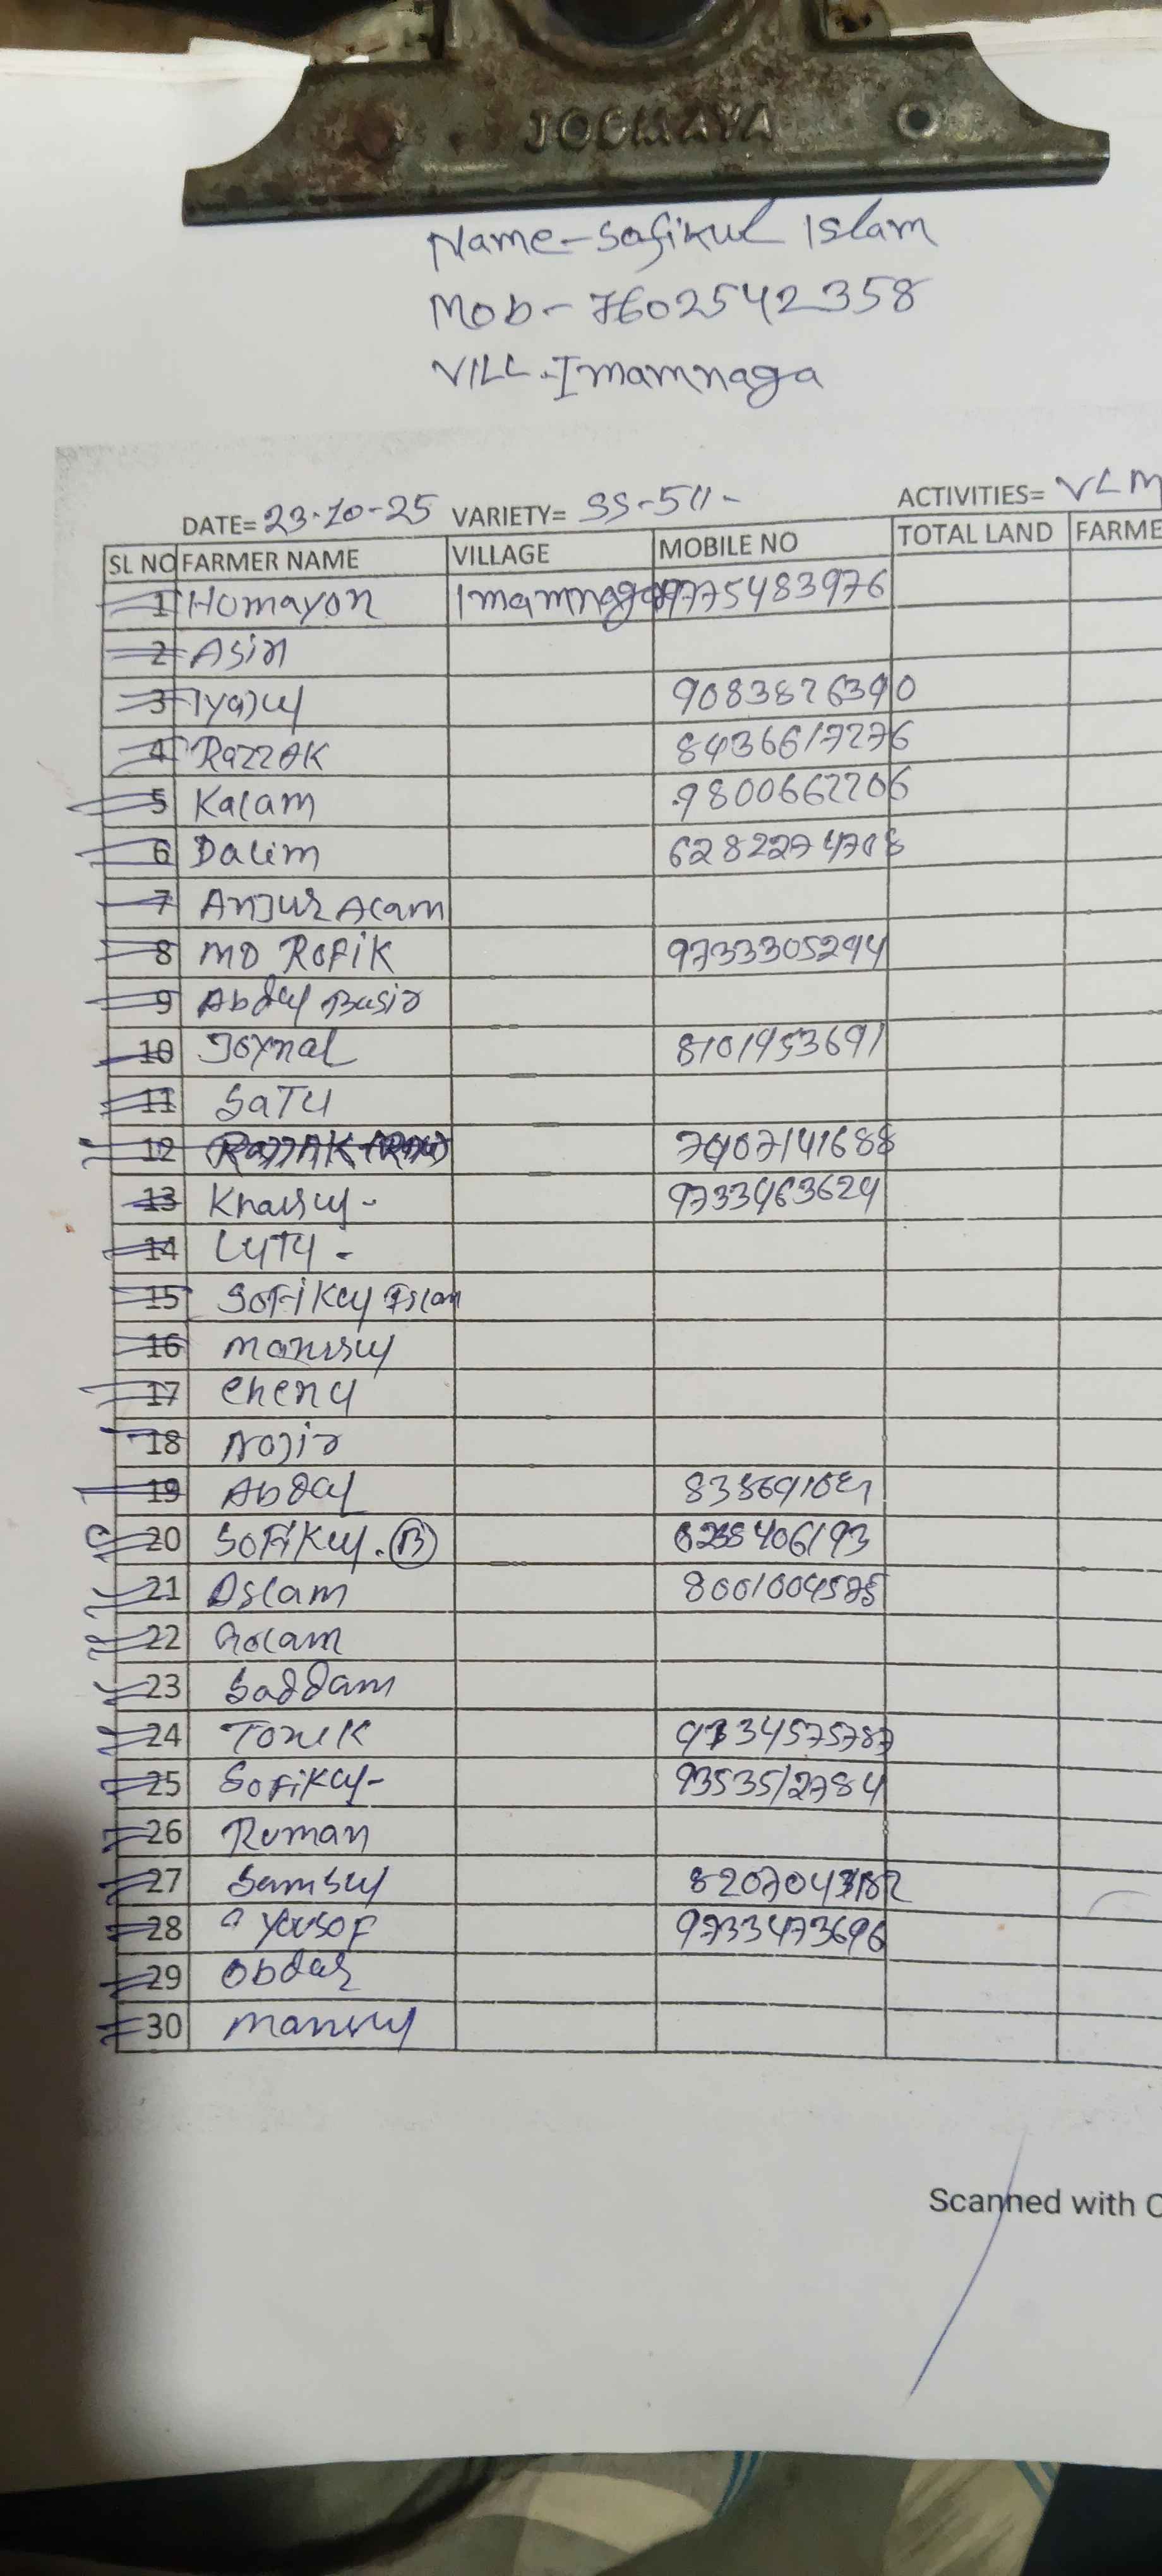 JOGMAYA
Name-Safikul Islam
Mob-7602542358
VILL-Imamnaga
DATE= 23-10-25 VARIETY= SS-511- ACTIVITIES= VLM
SL NO FARMER NAME VILLAGE MOBILE NO TOTAL LAND FARME
1 Homayon Imamnagar 9775483976
2 Asir
3 9083876390
4 RazzAK 8436617276
5 Kalam 9800662206
6 Dalim 6282274708
7 Anjur Alam
8 MD Rofik 9733305294
9 Abdul Basir
10 Joynal 8101953691
11 SaTu
12 7407141688
13 9733463624
14 LuTu -
15 Sofikul Islam
16
17 Chenu
18 Nojir
19 Abdal
20 Sofikul. (B)
21 Oslam
22 Golam
23 Saddam
24
25 Sofikul- 9353512784
26 Ruman
27 Samsul
28 Yousof 9733473696
29 Obdar
30
Scanned with C